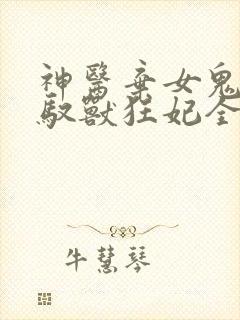 神醫棄女鬼
馭獸狂妃全
牛慧琴